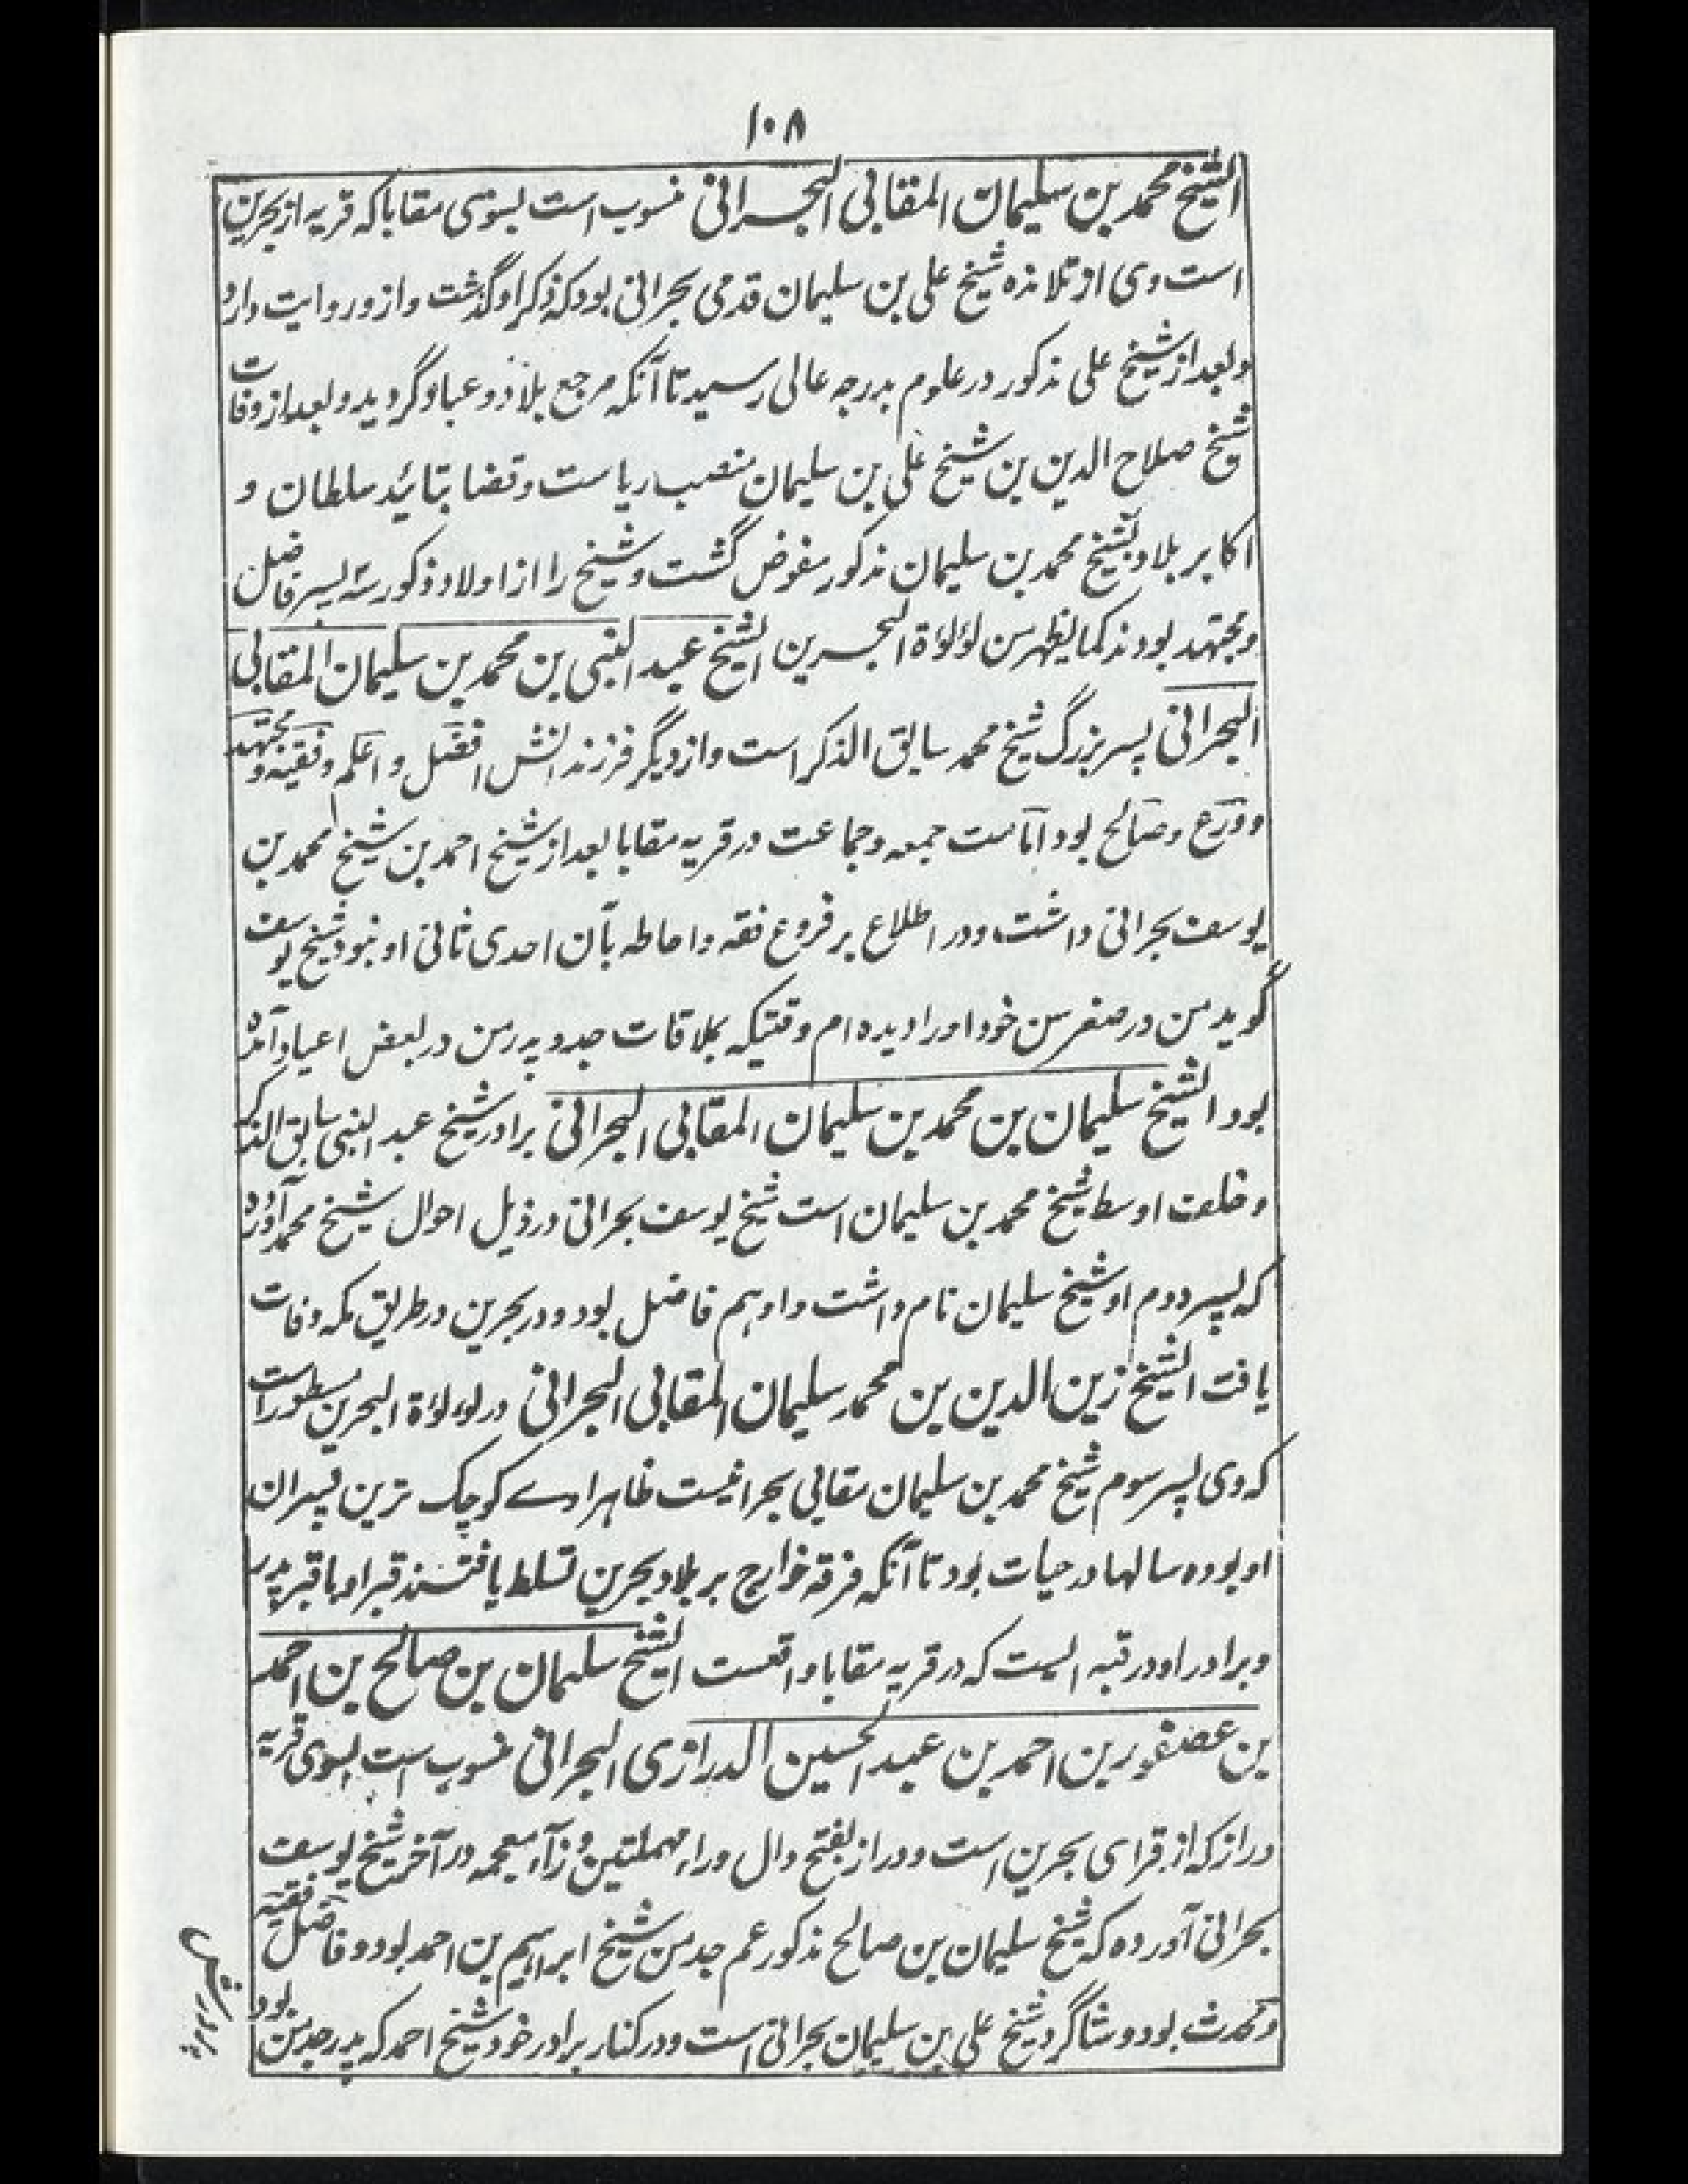 ۱۰۸
الشیخ محمد بن سلیمان المقابی البحرانی منسوب است بسوی مقابا که قریه از بحرین
است وی از تلامذه شیخ علی بن سلیمان قدمی بحرانی بود که ذکر او گذشت و از و روایت دارد
و بعد از شیخ علی مذکور در علوم بدرجه عالی رسید تا آنکه مرجع بلاد و عباد گردید و بعد از وفات
شیخ صلاح الدین بن شیخ علی بن سلیمان منصب ریاست و قضا بتائید سلطان و
اکابر بلاد بشیخ محمد بن سلیمان مذکور مفوض گشت و شیخ را از اولاد ذکور سه پسر فاضل
و مجتهد بودند کما یظهر من لؤلؤة البحرین الشیخ عبد النبی بن محمد بن سلیمان المقابی
البحرانی پسر بزرگ شیخ محمد سابق الذکر است و از دیگر فرزندانش افضل و اعلم و فقیه و مجتهد
و ورع و صالح بود امامت جمعه و جماعت در قریه مقابا بعد از شیخ احمد بن شیخ محمد بن
یوسف بحرانی داشت و در اطلاع بر فروع فقه و احاطه بآن احدی ثانی او نبود شیخ یوسف
گوید من در صغر سن خود او را دیده ام وقتیکه بملاقات جد و پدر من در بعض اعیاد آمده
بود الشیخ سلیمان بن محمد بن سلیمان المقابی البحرانی برادر شیخ عبد النبی سابق الذکر
و خلف اوسط شیخ محمد بن سلیمان است شیخ یوسف بحرانی در ذیل احوال شیخ محمد آورده
که پسر دوم او شیخ سلیمان نام داشت و او هم فاضل بود و در بحرین در طریق مکه وفات
یافت الشیخ زین الدین بن محمد سلیمان المقابی البحرانی در لؤلؤة البحرین مسطور است
که وی پسر سوم شیخ محمد بن سلیمان مقابی بحرانیست ظاهرا وے کوچک ترین پسران
او بوده سالها در حیات بود تا آنکه فرقه خوارج بر بلاد بحرین تسلط یافتند قبر او با قبر پدر
و برادر او در قبه ایست که در قریه مقابا واقعست الشیخ سلیمان بن صالح بن احمد
بن عصفور بن احمد بن عبد الحسین الدرازی البحرانی منسوب است بسوی قریه
دراز که از قرای بحرین است و دراز بفتح دال و راء مهملتین و زاء معجمه در آخر شیخ یوسف
بحرانی آورده که شیخ سلیمان بن صالح مذکور عم جد من شیخ ابراهیم بن احمد بود و فاضل فقیه
و محدث بود و شاگرد شیخ علی بن سلیمان بحرانی است و در کنار برادر خود شیخ احمد که پدر جد من بود